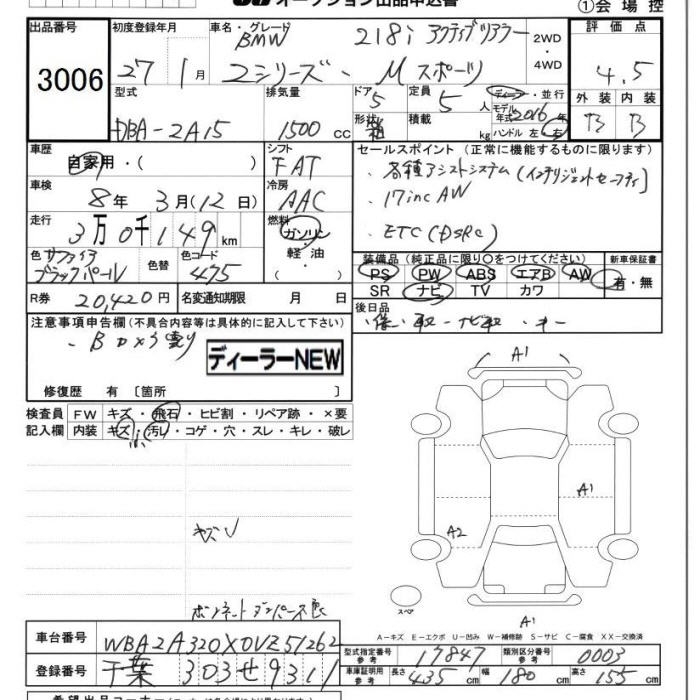 オークション出品申込書 ①会場控
出品番号 3006
初度登録年月 27年1月
車名・グレード BMW 218i アクティブツアラー
2シリーズ・Mスポーツ
2WD・4WD
評価点 4.5
外装 B 内装 B
型式 DBA-2A15
排気量 1500cc
ドア 5
形状
定員 5人
積載 kg
ディーラー・並行
モデル年式 2016年
ハンドル 左・右
車歴 自家用・( )
シフト FAT
車検 8年3月(12日)
冷房 AAC
走行 3万0千149km
燃料 ガソリン・軽油・( )
色 サファイアブラックパール
色替
色コード 475
R券 20,420円
名変通知期限 月 日
セールスポイント(正常に機能するものに限ります)
・各種アシストシステム(インテリジェントセーフティ)
・17inc AW
・ETC(DSRC)
装備品(純正品に限り〇をつけてください)
PS PW ABS エアB AW
SR ナビ TV カワ
新車保証書 有・無
後日品
・保・取・ナビ取・キー
注意事項申告欄(不具合内容等は具体的に記入して下さい)
ディーラーNEW
修復歴 有〔箇所 〕
検査員記入欄
FW キズ・飛石・ヒビ割・リペア跡・×要
内装 キズ・汚れ・コゲ・穴・スレ・キレ・破レ
キズU
ボンネットダンパース良
A1
A1
A2
A1
スペア
A-キズ E-エクボ U-凹み W-補修跡 S-サビ C-腐食 XX-交換済
車台番号 WBA2A320X0VZ51262
登録番号 千葉303せ9311
型式指定番号 参考 17847
類別区分番号 参考 0003
車庫証明用 参考 長さ 435cm 幅 180cm 高さ 155cm